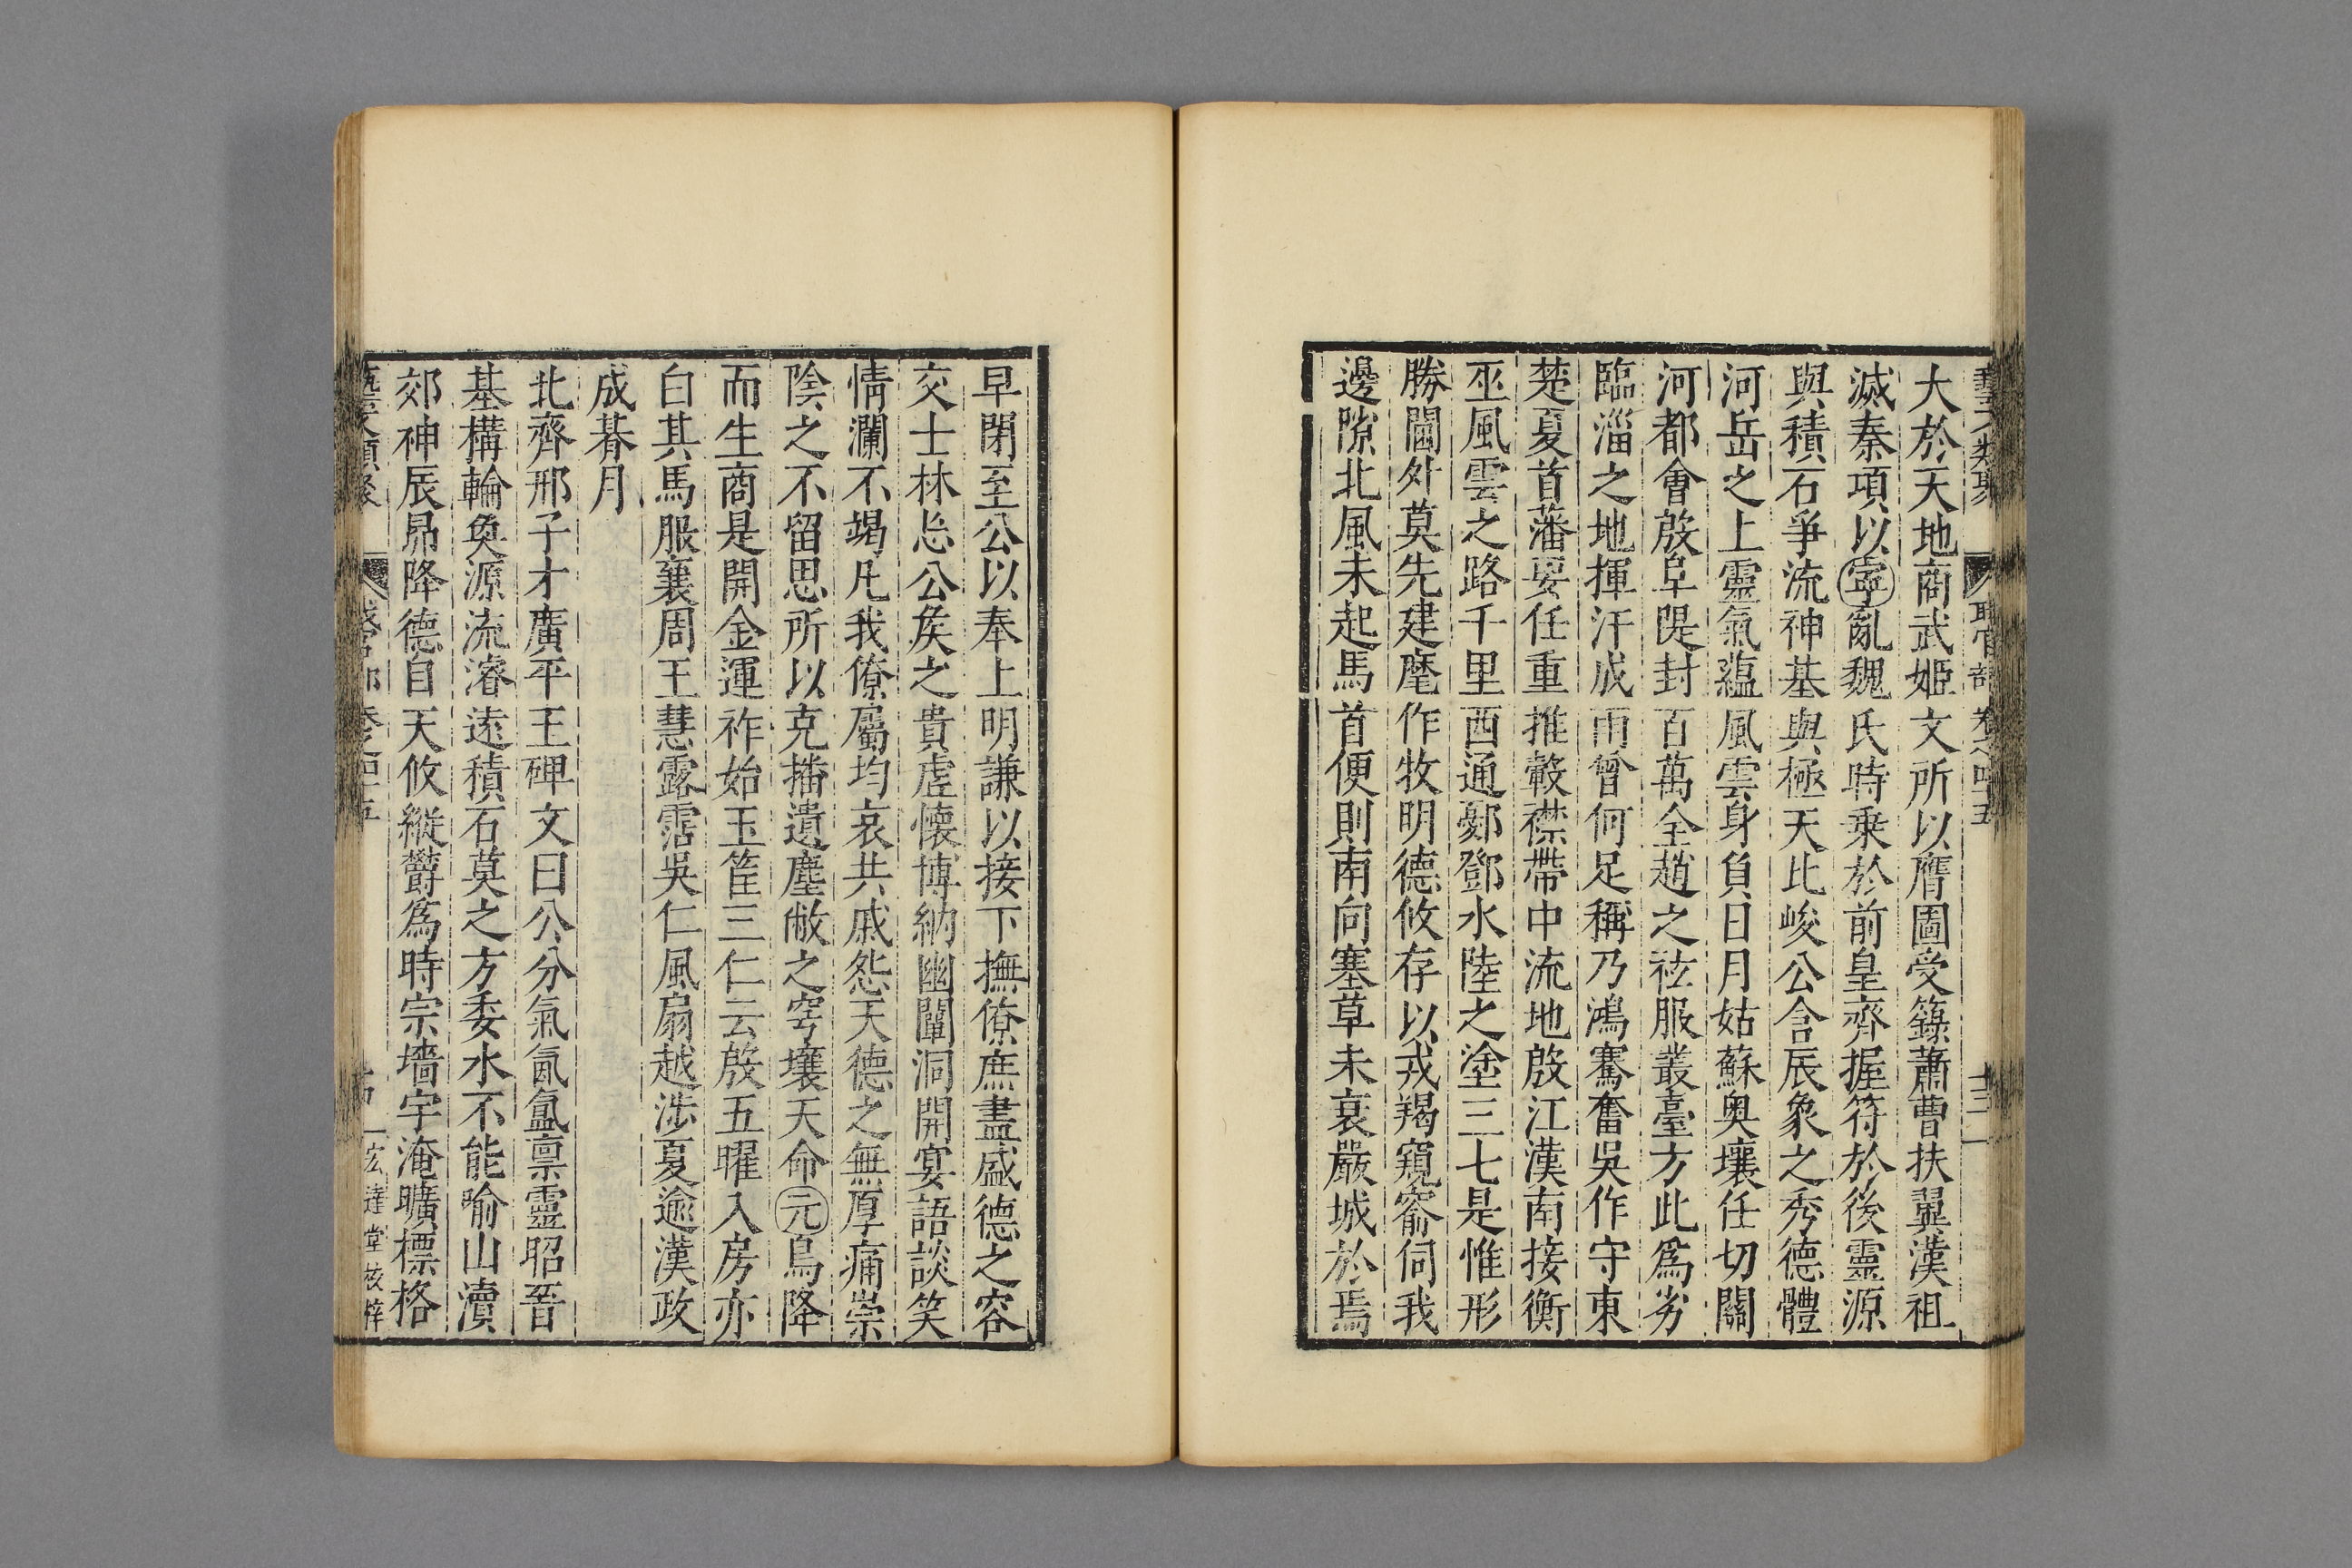 大於天地商武姬文所以膺圖受籙蕭曹扶翼漢祖
滅秦項以寧亂魏氏時乗於前皇齊握符於後靈源
與積石爭流神基與極天比峻公含辰象之秀德體
河岳之上靈氣蘊風雲身負日月姑蘇奥壤任切關
河都會殷阜隄封百萬全趙之袨服叢臺方此爲劣
臨淄之地揮汗成雨曾何足稱乃鴻騫奮吳作守東
楚夏首藩要任重推轂襟帶中流地殷江漢南接衡
巫風雲之路千里西通鄾鄧水陸之塗三七是惟形
勝閫外莫先建麾作牧明德攸存以戎羯窺窬伺我
邊隙北風未起馬首便則南向塞草未衰嚴城於焉
早閉至公以奉上明謙以接下撫僚庶盡盛德之容
交士林忘公矦之貴虚懷博納幽闡洞開宴語談笑
情瀾不竭凡我僚屬均哀共戚怨天德之無厚痛崇
陰之不留思所以克播遺塵敝之穹壤天命元鳥降
而生商是開金運祚始玉筐三仁云啟五曜入房亦
白其馬服襄周王慧露霑吳仁風扇越涉夏逾漢政
成朞月
北齊邢子才廣平王碑文曰公分氣氤氳禀靈昭晉
基構輪奐源流濬遠積石莫之方委水不能喻山瀆
郊神辰昴降德自天攸縱欝爲時宗墻宇淹曠標格
宏達堂校梓